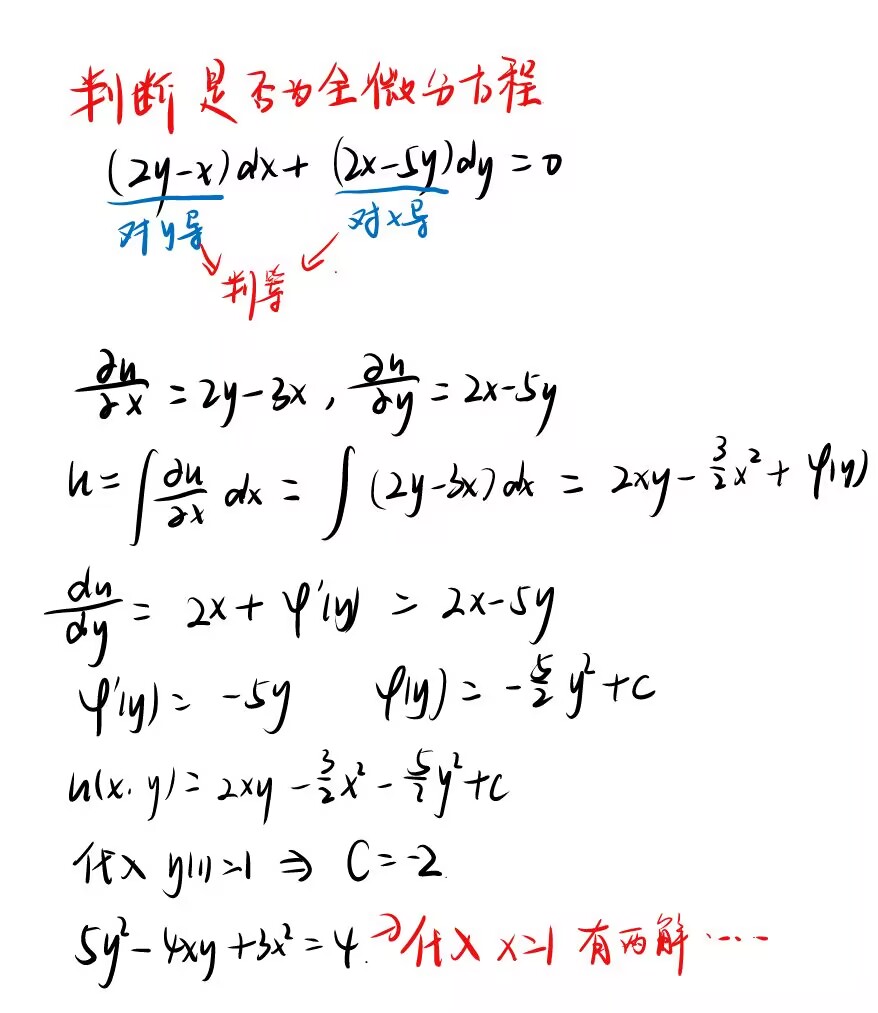 判断是否为全微分方程
(2y-x)dx+(2x-5y)dy=0
对y导 对x导
判等
∂u/∂x=2y-3x, ∂u/∂y=2x-5y
u=∫∂u/∂x dx=∫(2y-3x)dx=2xy-3/2x²+φ(y)
du/dy=2x+φ'(y)=2x-5y
φ'(y)=-5y φ(y)=-5/2y²+c
u(x.y)=2xy-3/2x²-5/2y²+c
代入y(1)=1⇒C=-2.
5y²-4xy+3x²=4.→代入x=1有两解.....